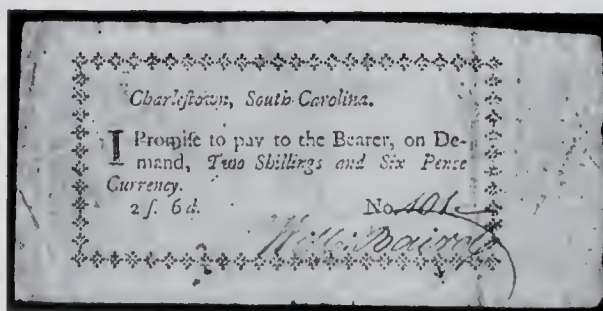 Charlestown, South-Carolina.
I Promise to pay to the Bearer, on De-
mand, Two Shillings and Six Pence
Currency.
2 ſ. 6 d. No. 101
Willm Baird